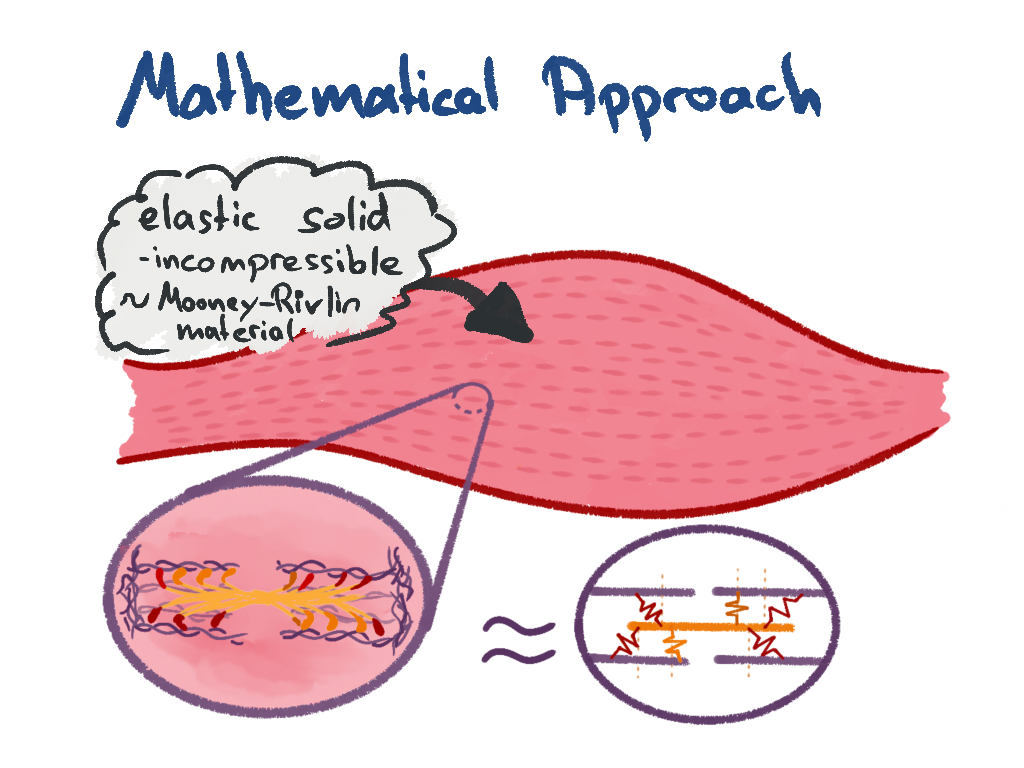 Mathematical Approach
elastic solid
-incompressible
~ Mooney-Rivlin
material
≈